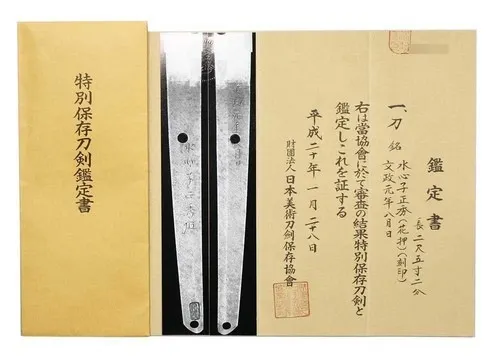 鑑定書
長 二尺五寸二分
一、刀 銘 水心子正秀(花押)(刻印)
文政元年八月日
右は當協會に於て審査の結果特別保存刀剣と
鑑定しこれを証する
平成二十年一月二十八日
財團法人日本美術刀剣保存協會
特別保存刀剣鑑定書